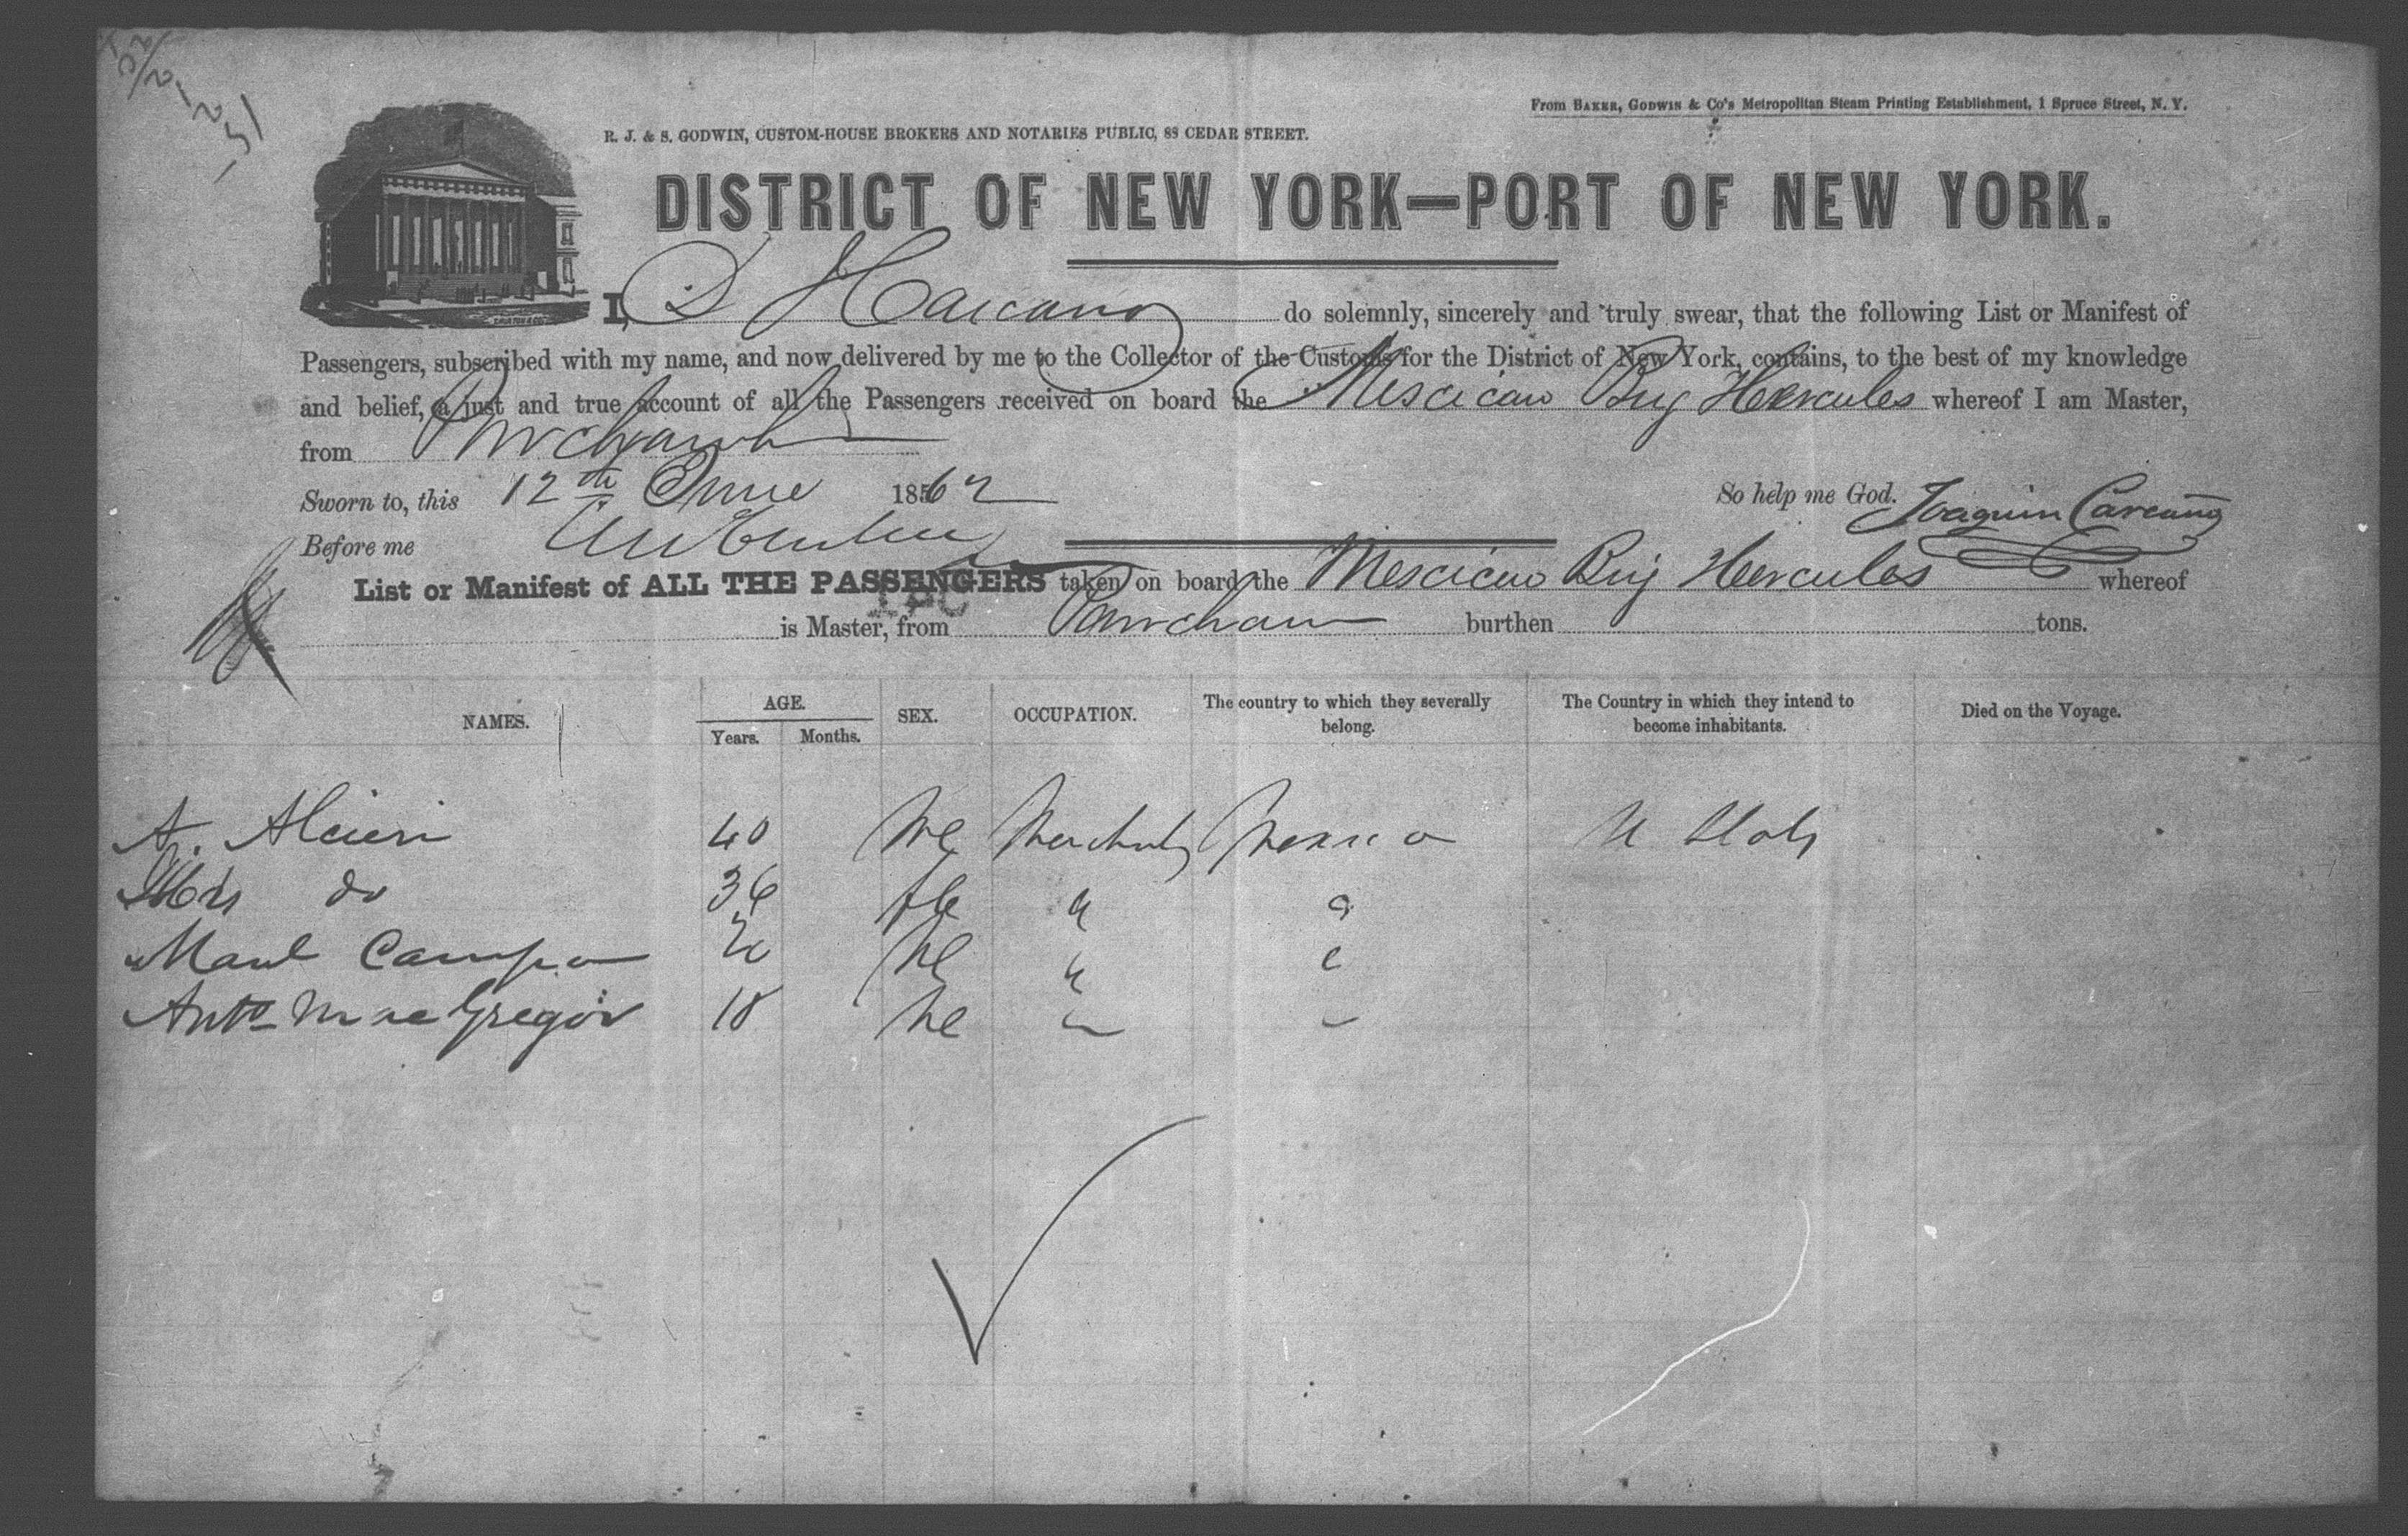 From BAKER, GODWIN & Co's Metropolitan Steam Printing Establishment, 1 Spruce Street, N. Y.
R. J. & S. GODWIN, CUSTOM-HOUSE BROKERS AND NOTARIES PUBLIC, 88 CEDAR STREET.
DISTRICT OF NEW YORK—PORT OF NEW YORK.
I, do solemnly, sincerely and truly swear, that the following List or Manifest of
Passengers, subscribed with my name, and now delivered by me to the Collector of the Customs for the District of New York, contains, to the best of my knowledge
and belief, a just and true account of all the Passengers received on board the Mescican Brig Hercules whereof I am Master,
from
Sworn to, this 12th June 1862 So help me God. Joaquin Carcaño
Before me
List or Manifest of ALL THE PASSENGERS taken on board the Mescican Brig Hercules whereof
is Master, from burthen tons.
NAMES. AGE. Years. Months. SEX. OCCUPATION. The country to which they severally belong. The Country in which they intend to become inhabitants. Died on the Voyage.
A. 40 Me Mexico U States
Mrs do 36 fle "
Manl Campo 20 Me "
Anto MacGregor 18 Me "